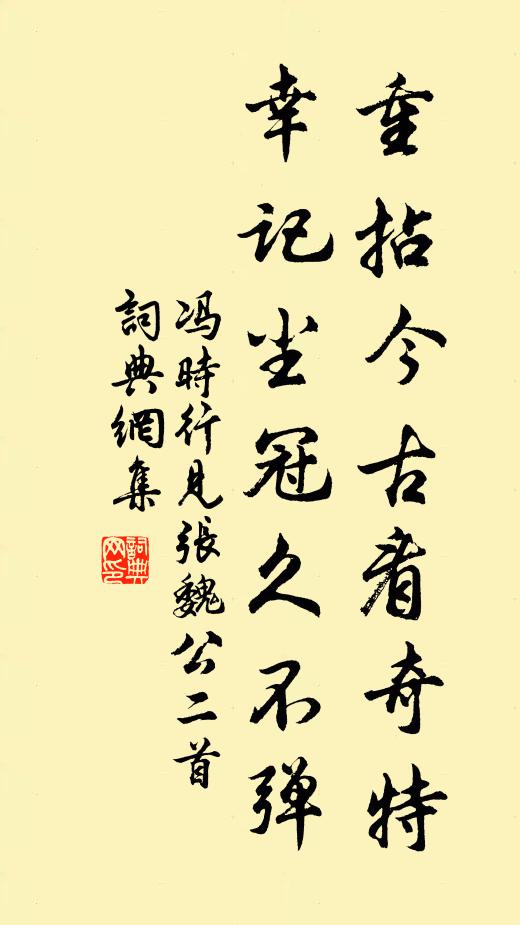 重拈今古看奇特
幸记尘冠久不弹
冯時行見張魏公二首
詞典網集
詞典网印